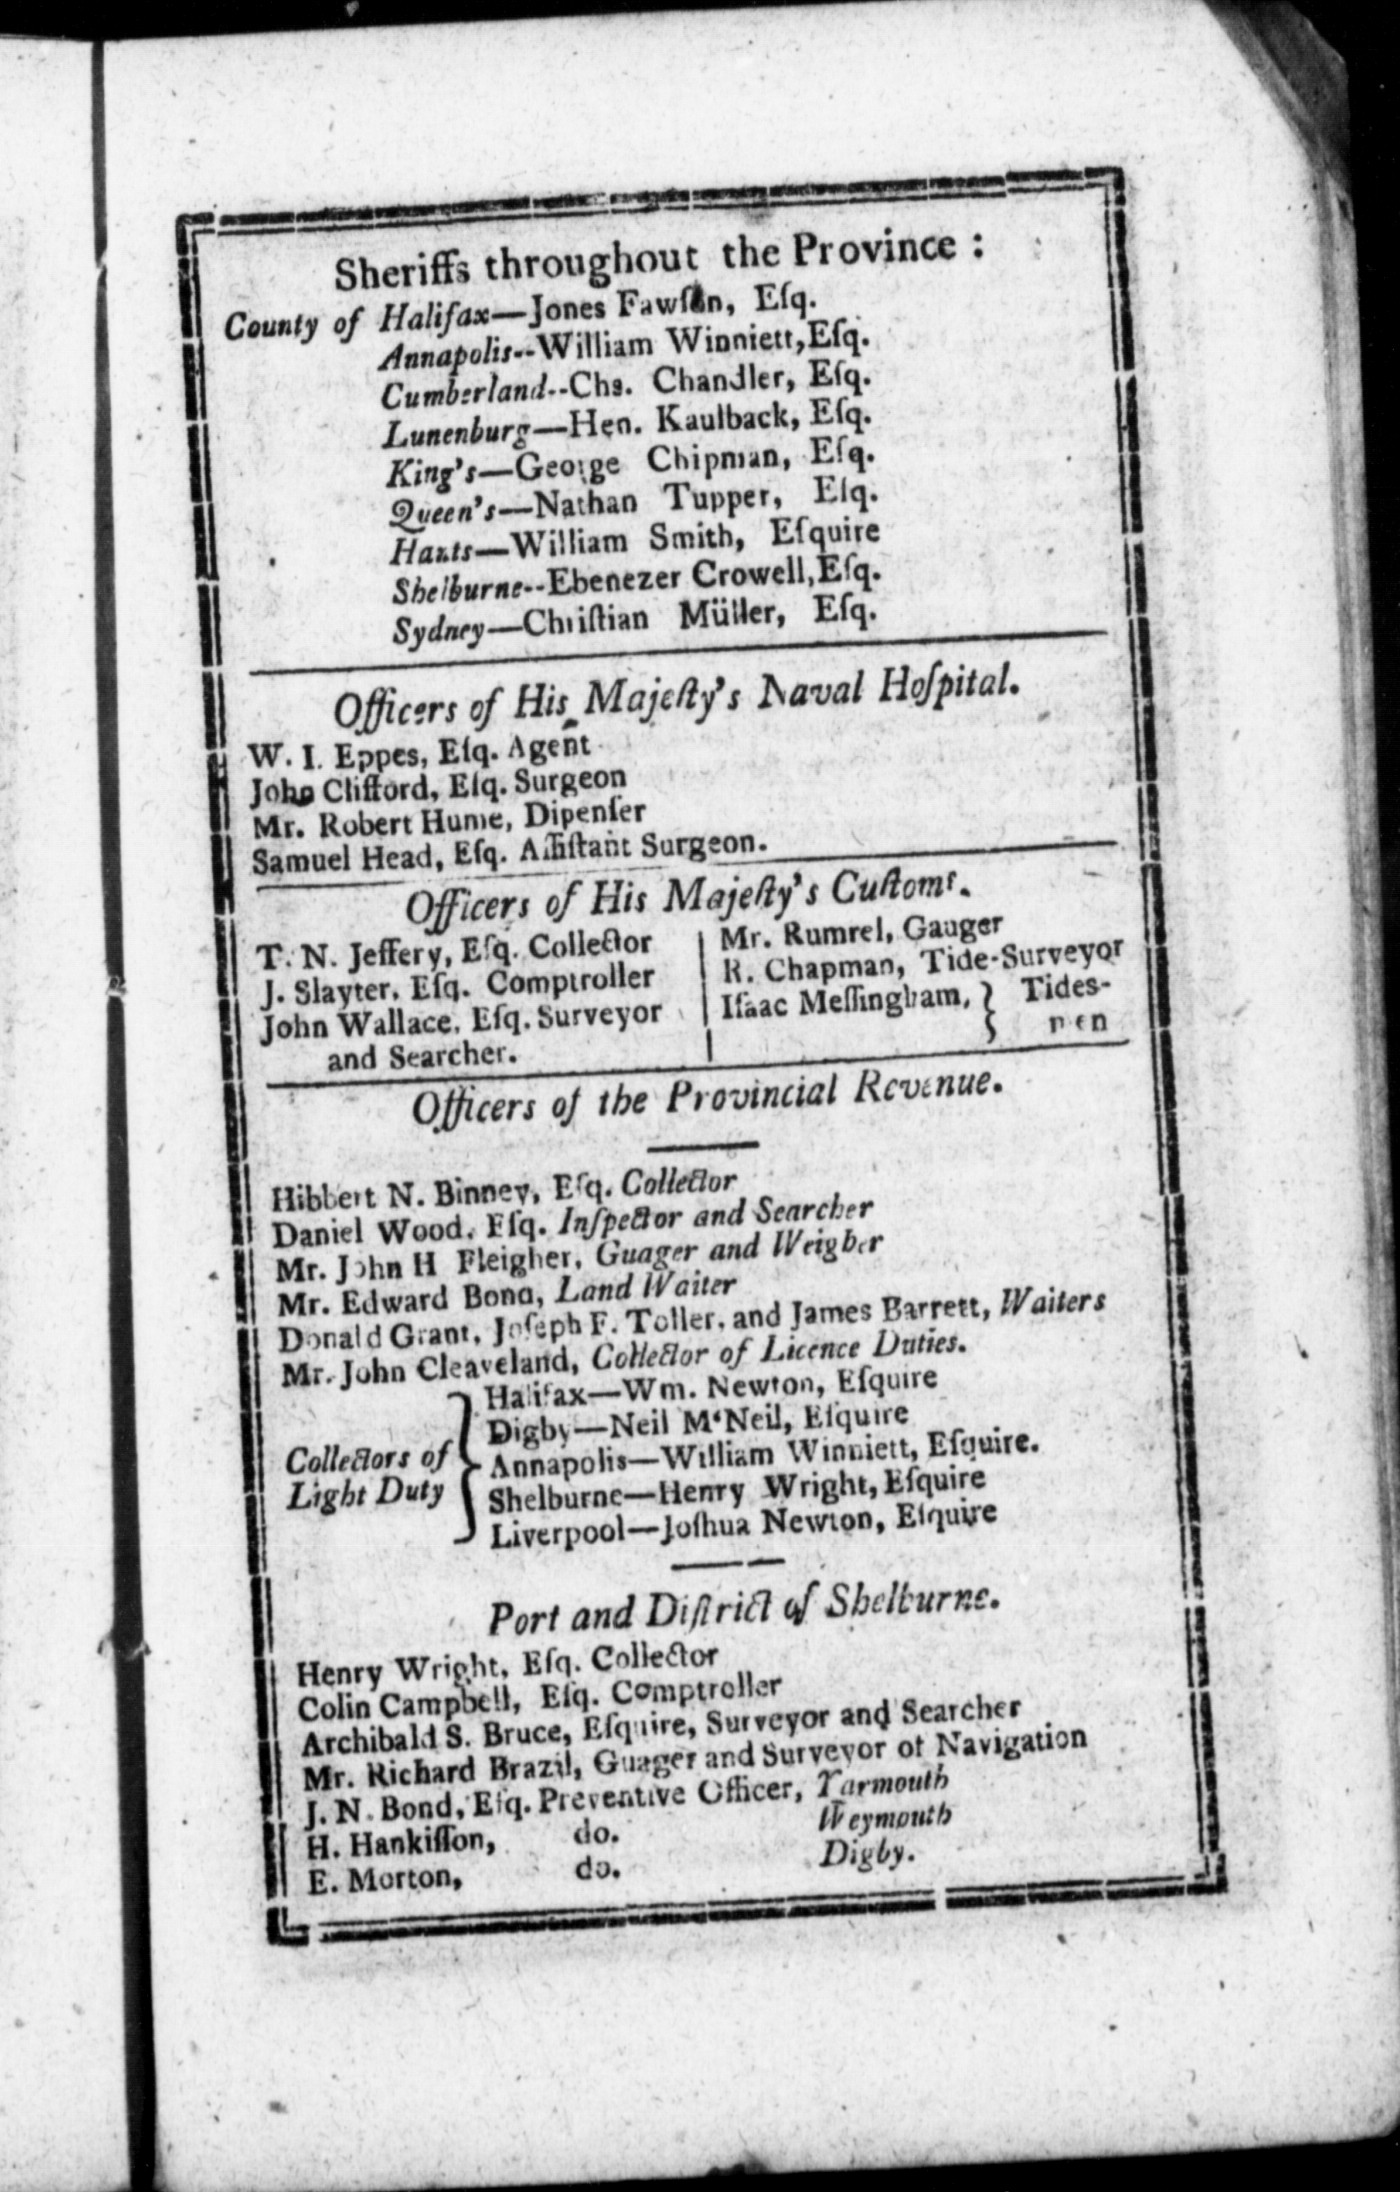 Sheriffs throughout the Province :
County of Halifax—Jones Fawſon, Eſq.
Annapolis--William Winniett, Eſq.
Cumberland--Chs. Chandler, Eſq.
Lunenburg—Hen. Kaulback, Eſq.
King's—George Chipman, Eſq.
Queen's—Nathan Tupper, Eſq.
Hants—William Smith, Eſquire
Shelburne--Ebenezer Crowell, Eſq.
Sydney—Chriſtian Müller, Eſq.
Officers of His Majeſty's Naval Hoſpital.
W. I. Eppes, Eſq. Agent
John Clifford, Eſq. Surgeon
Mr. Robert Hume, Dipenſer
Samuel Head, Eſq. Aſſiſtant Surgeon.
Officers of His Majeſty's Cuſtoms.
T. N. Jeffery, Eſq. Collector
J. Slayter, Eſq. Comptroller
John Wallace, Eſq. Surveyor
and Searcher.
Mr. Rumrel, Gauger
R. Chapman, Tide-Surveyor
Iſaac Meſſingham, } Tides-
men
Officers of the Provincial Revenue.
Hibbert N. Binney, Eſq. Collector
Daniel Wood, Eſq. Inſpector and Searcher
Mr. John H Fleigher, Guager and Weigher
Mr. Edward Bond, Land Waiter
Donald Grant, Joſeph F. Toller, and James Barrett, Waiters
Mr. John Cleaveland, Collector of Licence Duties.
Collectors of
Light Duty
Halifax—Wm. Newton, Eſquire
Digby—Neil M‘Neil, Eſquire
Annapolis—William Winniett, Eſquire.
Shelburne—Henry Wright, Eſquire
Liverpool—Joſhua Newton, Eſquire
Port and Diſtrict of Shelburne.
Henry Wright, Eſq. Collector
Colin Campbell, Eſq. Comptroller
Archibald S. Bruce, Eſquire, Surveyor and Searcher
Mr. Richard Brazil, Guager and Surveyor of Navigation
J. N. Bond, Eſq. Preventive Officer, Yarmouth
H. Hankiſſon, do. Weymouth
E. Morton, do. Digby.